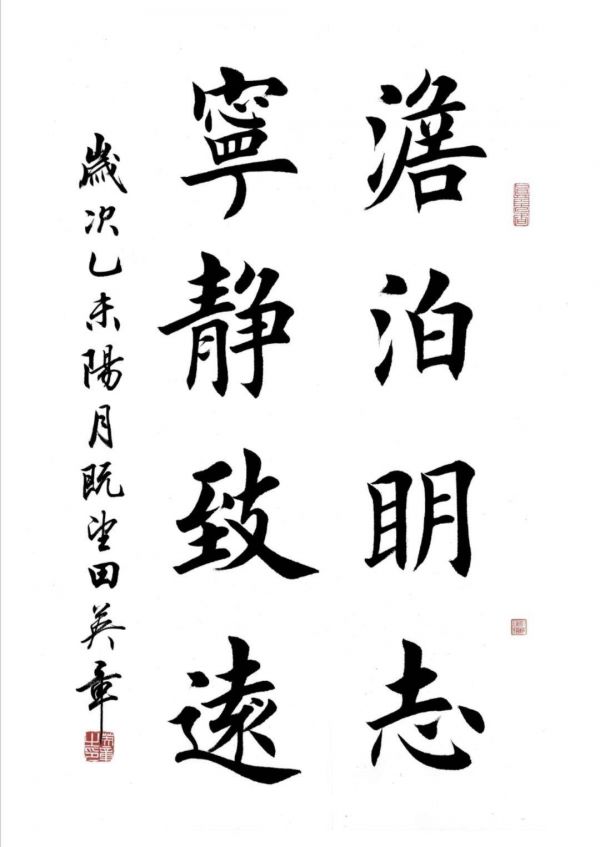 澹泊明志
寧静致遠
歲次乙未陽月既望田英章